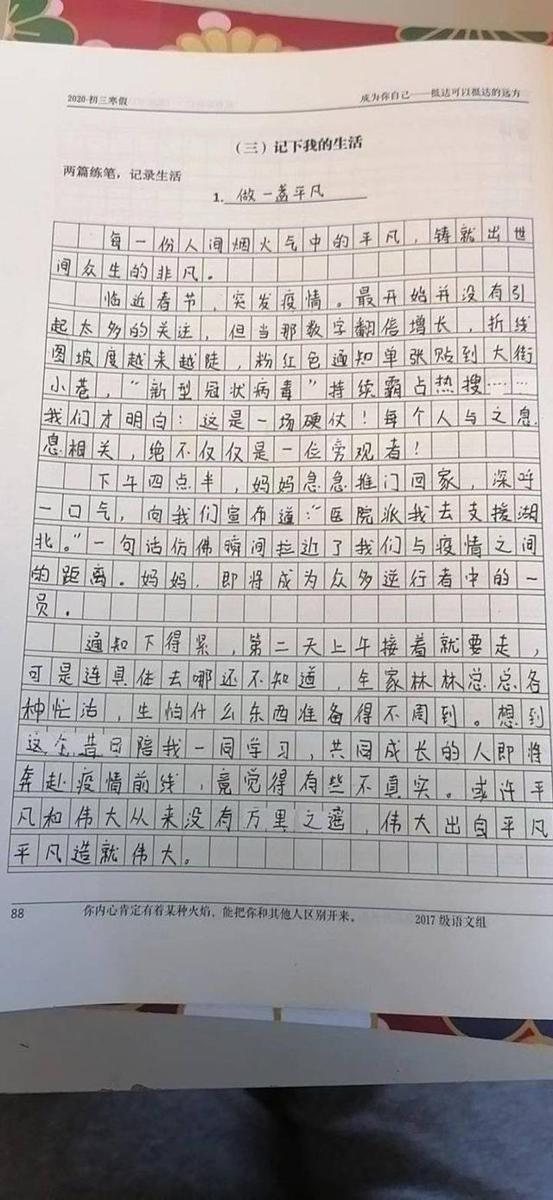 2020·初三寒假
成为你自己——抵达可以抵达的远方
（三）记下我的生活
两篇练笔，记录生活
1. 做一盏平凡
每一份人间烟火气中的平凡，铸就出世
间众生的非凡。
临近春节，突发疫情。最开始并没有引
起太多的关注，但当那数字翻倍增长，折线
图坡度越来越陡，粉红色通知单张贴到大街
小巷，“新型冠状病毒”持续霸占热搜……
我们才明白：这是一场硬仗！每个人与之息
息相关，绝不仅仅是一位旁观者！
下午四点半，妈妈急急推门回家，深呼
一口气，向我们宣布道：“医院派我去支援湖
北。”一句话仿佛瞬间拉近了我们与疫情之间
的距离。妈妈，即将成为众多逆行者中的一
员。
通知下得紧，第二天上午接着就要走，
可是连具体去哪还不知道，全家林林总总各
种忙活，生怕什么东西准备得不周到。想到
这个昔日陪我一同学习，共同成长的人即将
奔赴疫情前线，竟觉得有些不真实。或许平
凡和伟大从来没有万里之遥，伟大出自平凡
平凡造就伟大。
88
你内心肯定有着某种火焰，能把你和其他人区别开来。
2017级语文组